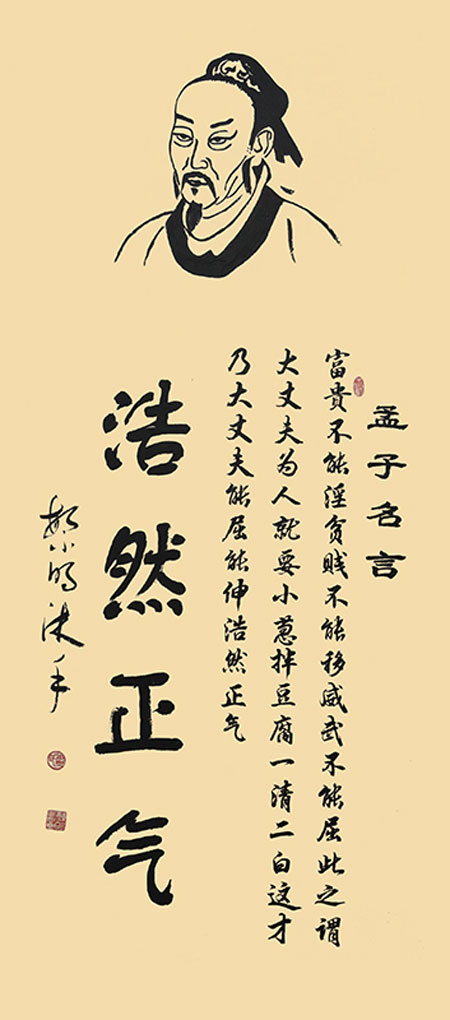 孟子名言
富贵不能淫贫贱不能移威武不能屈此之谓
大丈夫为人就要小葱拌豆腐一清二白这才
乃大丈夫能屈能伸浩然正气
浩然正气